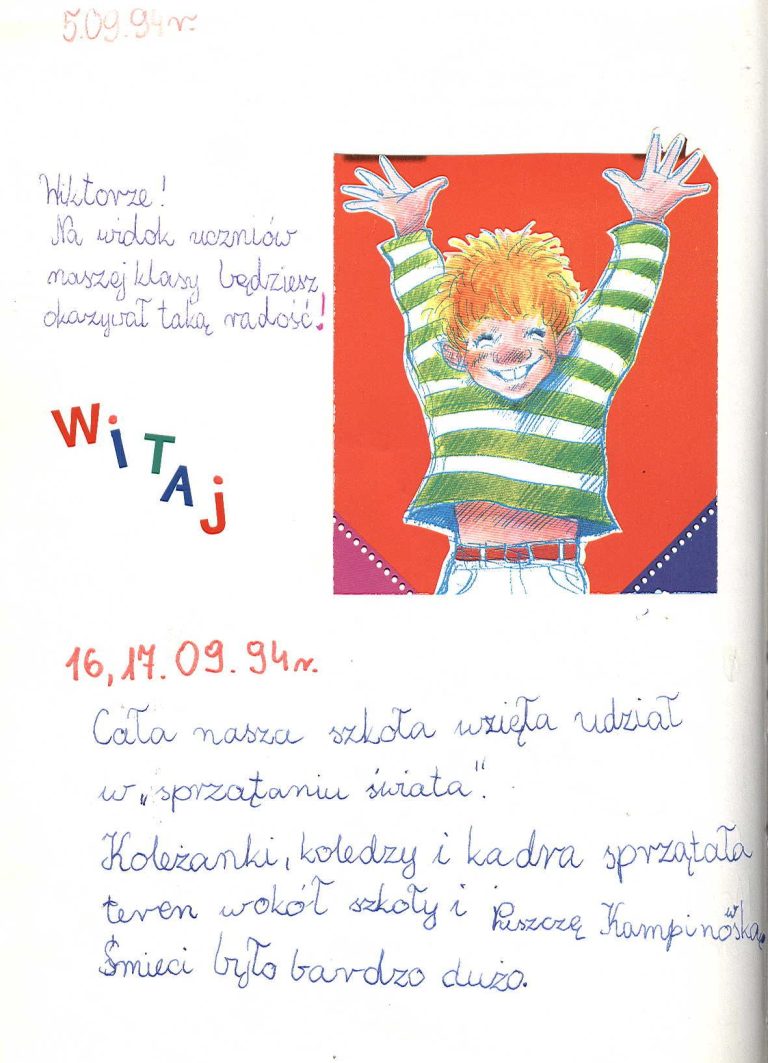 5.09.94r.
Wiktorze!
Na widok uczniów
naszej klasy będziesz
okazywał taką radość!
WiTAj
16,17.09.94r.
Cała nasza szkoła wzięła udział
w „sprzątaniu świata".
Koleżanki, koledzy i kadra sprzątała
teren wokół szkoły i Puszczę Kampinowską.
Śmieci było bardzo dużo.